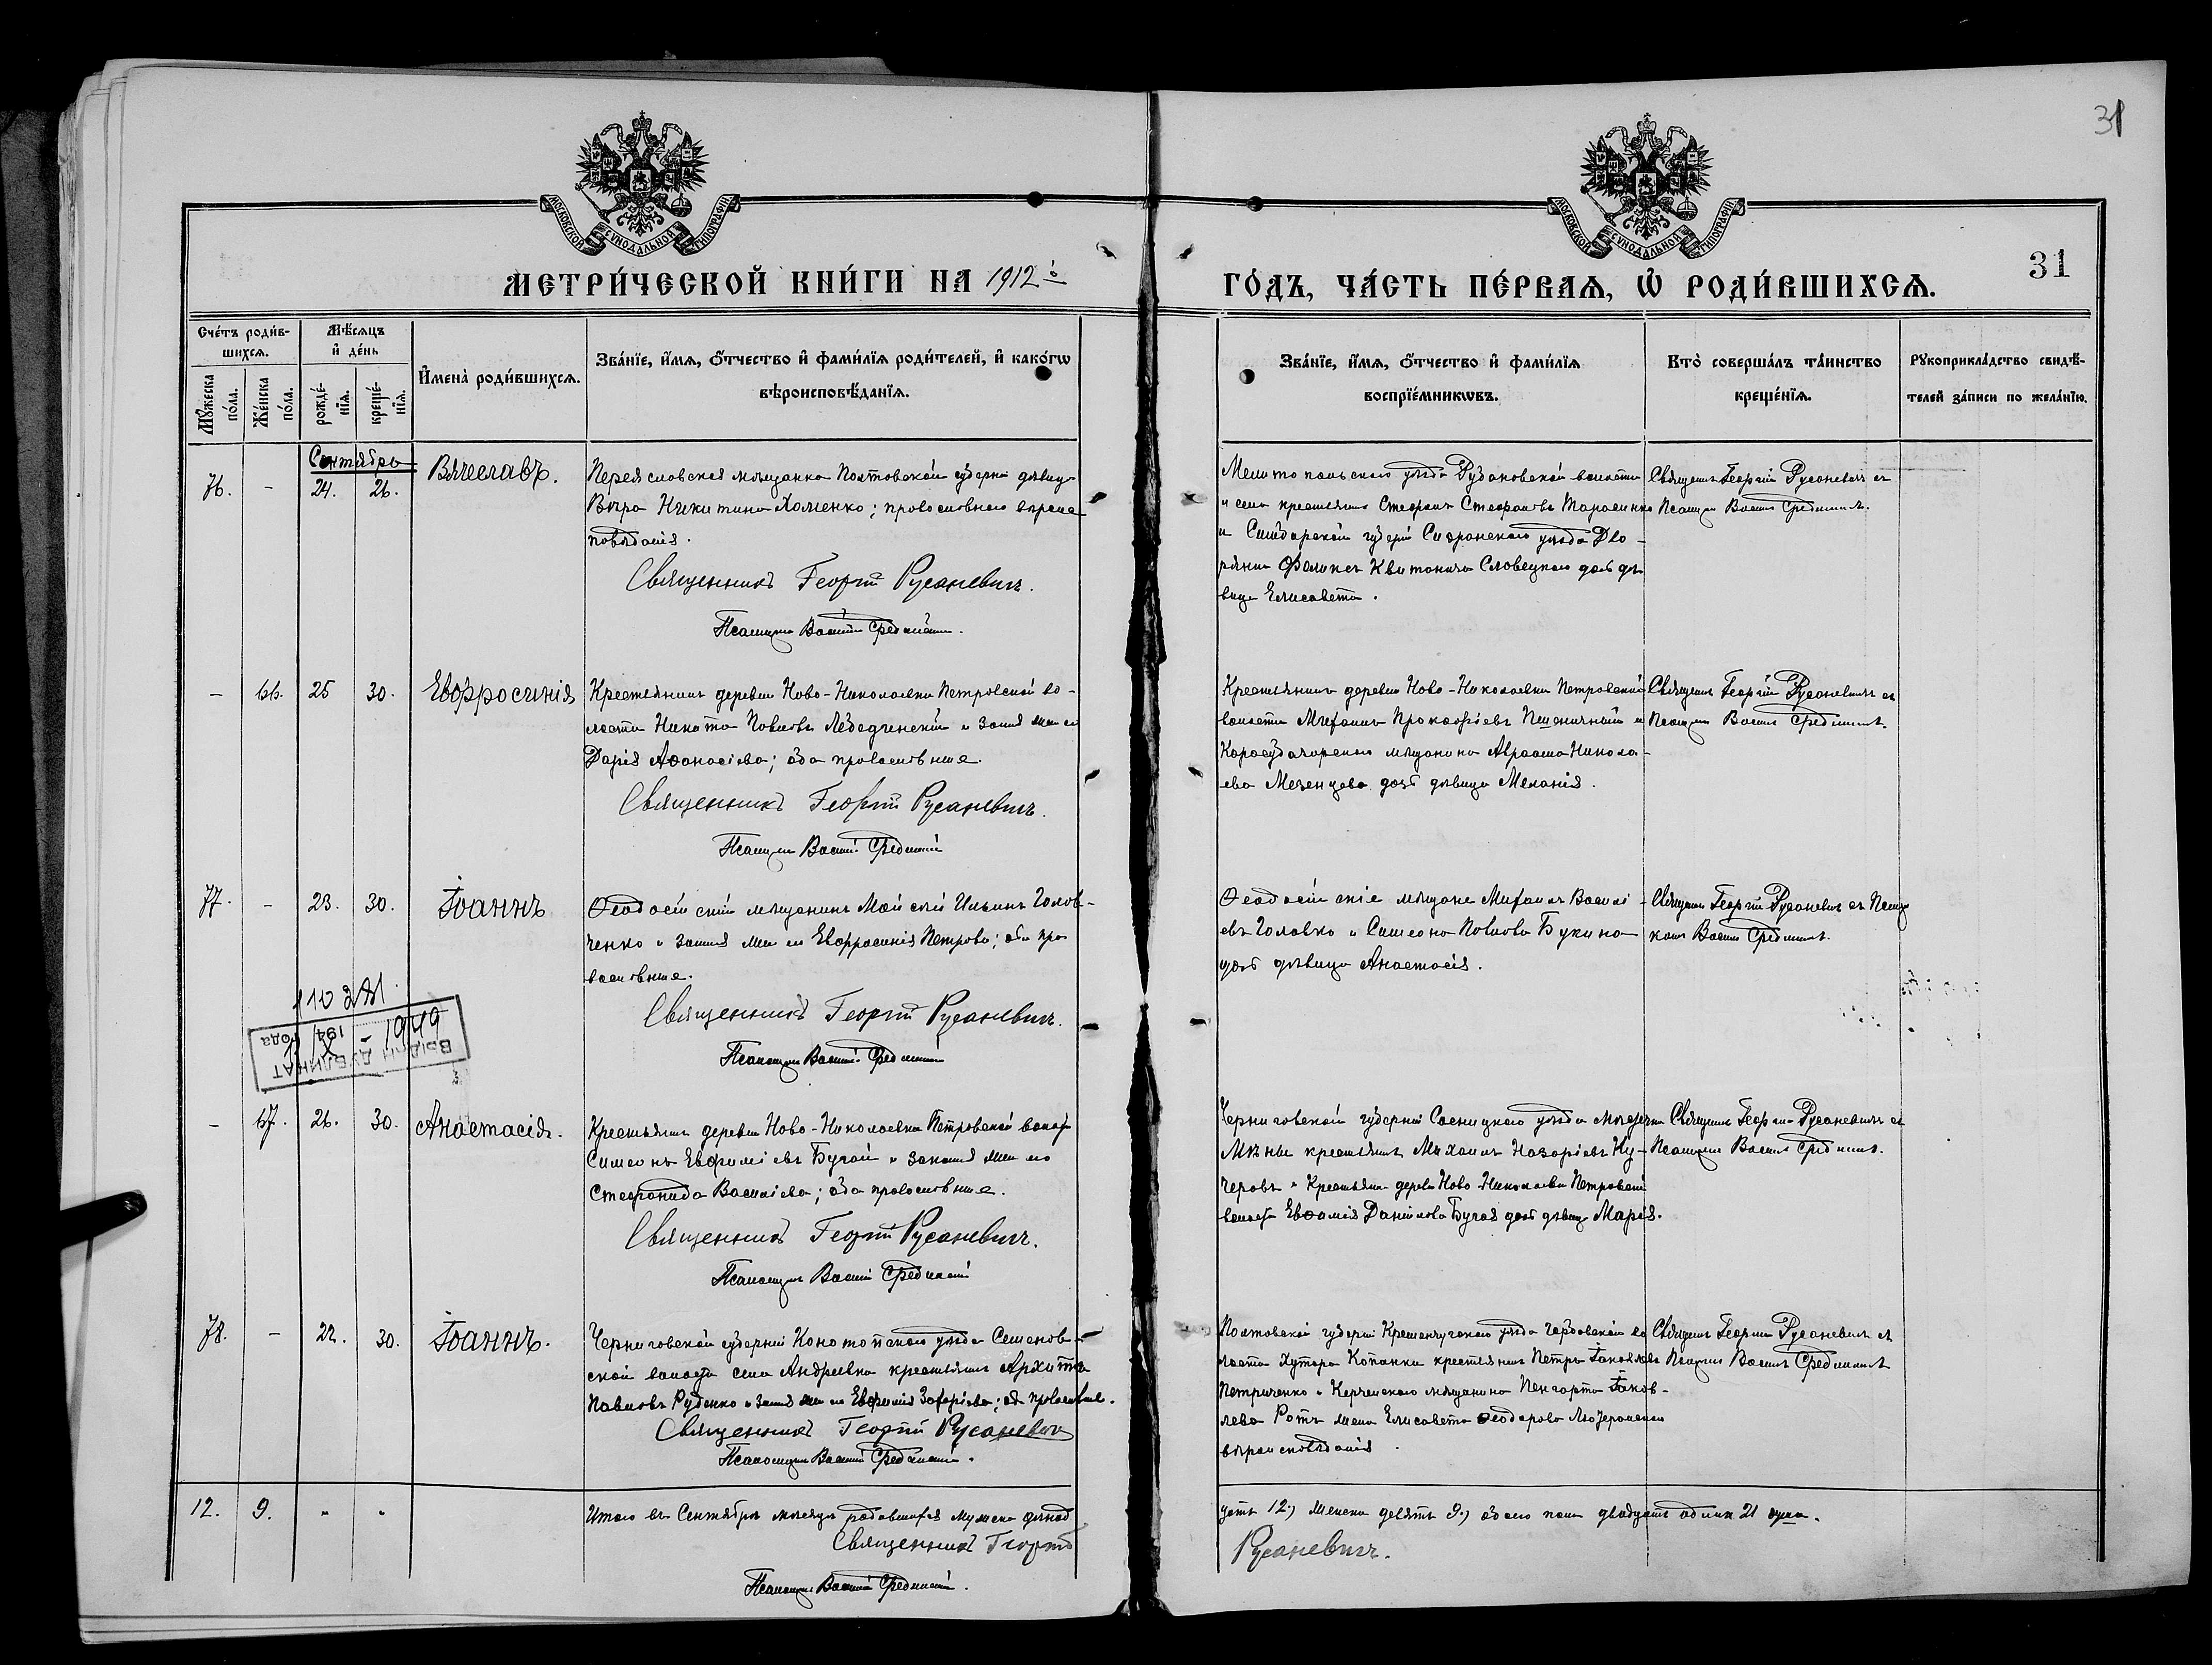 31
МОСКОВСКОЙ СѴНОДАЛЬНОЙ ТИПОГРАФІИ
МОСКОВСКОЙ СѴНОДАЛЬНОЙ ТИПОГРАФІИ
МЕТРИ́ЧЕСКОЙ КНИ́ГИ НА 1912 й
ГО́ДЪ, ЧА́СТЬ ПЕ́РВАѦ, Ѡ РОДИ́ВШИХСѦ.
31
Сче́тъ роди́в-
шихсѧ.
Мѣ́сѧцъ
и҆ де́нь
Мꙋ́жеска по́ла.
Же́нска по́ла.
рожде́-
нїѧ.
креще́-
нїѧ.
И҆мена̀ роди́вшихсѧ.
Зва́нїе, и҆́мѧ, ѻ҆́тчество и҆ фами́лїѧ роди́телей, и҆ како́гѡ
вѣроисповѣ́данїѧ.
Зва́нїе, и҆́мѧ, ѻ҆́тчество и҆ фами́лїѧ
воспрїе́мникѡвъ.
Кто̀ соверша́лъ та́инство
креще́нїѧ.
Рꙋкоприкла́дство свидѣ́-
телей за́писи по жела́нїю.
Сентябрь
76. - 24. 26. Вячеславъ.
Переяславская мѣщанка Полтовской губерніи дѣвица
Вѣра Никитина Хоменко; православнаго вѣроис
повѣданія.
Священникъ Георгій Русаневичъ.
Псаломщикъ Василій
Мелитопольскаго уѣзда волости
и села крестьянинъ Стефанъ Стефановъ Тарасенко
и губерніи уѣзда Дво-
рянина Феликса Словецкаго дочь дѣ
вица Елисавета.
Священникъ Георгій Русаневичъ съ
Псаломщ Василіемъ
- 66. 25 30. Евфросинія
Крестьянинъ деревни Ново-Николаевки Петровской во-
лости Никита Павловъ Лебединскій и законная жена его
Дарія Афанасіева; оба православные.
Священникъ Георгій Русаневичъ.
Псаломщ Василій
Крестьянинъ деревни Ново-Николаевки Петровской
волости Михаилъ Прокофіевъ Пшеничный и
Карасубазарскаго мѣщанина Авраама Никола-
ева Мезенцева дочь дѣвица Меланія.
Священникъ Георгій Русаневичъ съ
Псаломщ Василіемъ
77. - 23. 30. Іоаннъ
Ѳеодосійскій мѣщанинъ Моисей Ильинъ Голов-
ченко и законная жена его Евфросинія Петрова; оба пра
вославные.
Священникъ Георгій Русаневичъ.
Псаломщикъ Василій
Ѳеодосійскіе мѣщане Михаилъ Васили-
евъ Головко и Симеона Павлова Букина
дочь дѣвица Анастасія.
Священникъ Георгій Русаневичъ съ Псаломщ
комъ Василіемъ
ВЫДАН ДУБЛИКАТ
1949
194 года
- 67. 26. 30. Анастасія.
Крестьянинъ деревни Ново-Николаевки Петровской волос
Симеонъ Евфиміевъ Бугай и законная жена его
Стефанида Василіева; оба православные.
Священникъ Георгій Русаневичъ.
Псаломщикъ Василій
Черниговской губерніи Сосницкаго уѣзда
Мѣны крестьянинъ Михаилъ Назаріевъ Ку-
черовъ и Крестьянина деревни Ново-Николаевки Петровской
волости Даніилова Бугая дочь дѣвица Марія.
Священникъ Георгій Русаневичъ съ
Псаломщикомъ Василіемъ
78. - 22. 30. Іоаннъ.
Черниговской губерніи Конотопскаго уѣзда Семенов-
ской волости села Андреевки крестьянинъ Архиппъ
Павловъ Руденко и законная жена его Евфимія Захаріева; оба православные.
Священникъ Георгій Русаневичъ
Псаломщикъ Василій
Полтовской губерніи Кременчугскаго уѣзда во
лости хутора Котанки крестьянинъ Петръ Іаковлевъ
Петриченко и Керченскаго мѣщанина Іаков-
лева Ротъ жена Елисавета Ѳеодорова Лютеранскаго
вѣроисповѣданія.
Священникъ Георгій Русаневичъ съ
Псаломщик Василіемъ
12. 9. " "
Итого въ Сентябрѣ мѣсяцѣ родившихся мужска двѣнад
цать 12.) женска девять 9.) обоего пола двадцать одинъ 21 душа.
Священникъ Георгій
Русаневичъ.
Псаломщикъ Василій